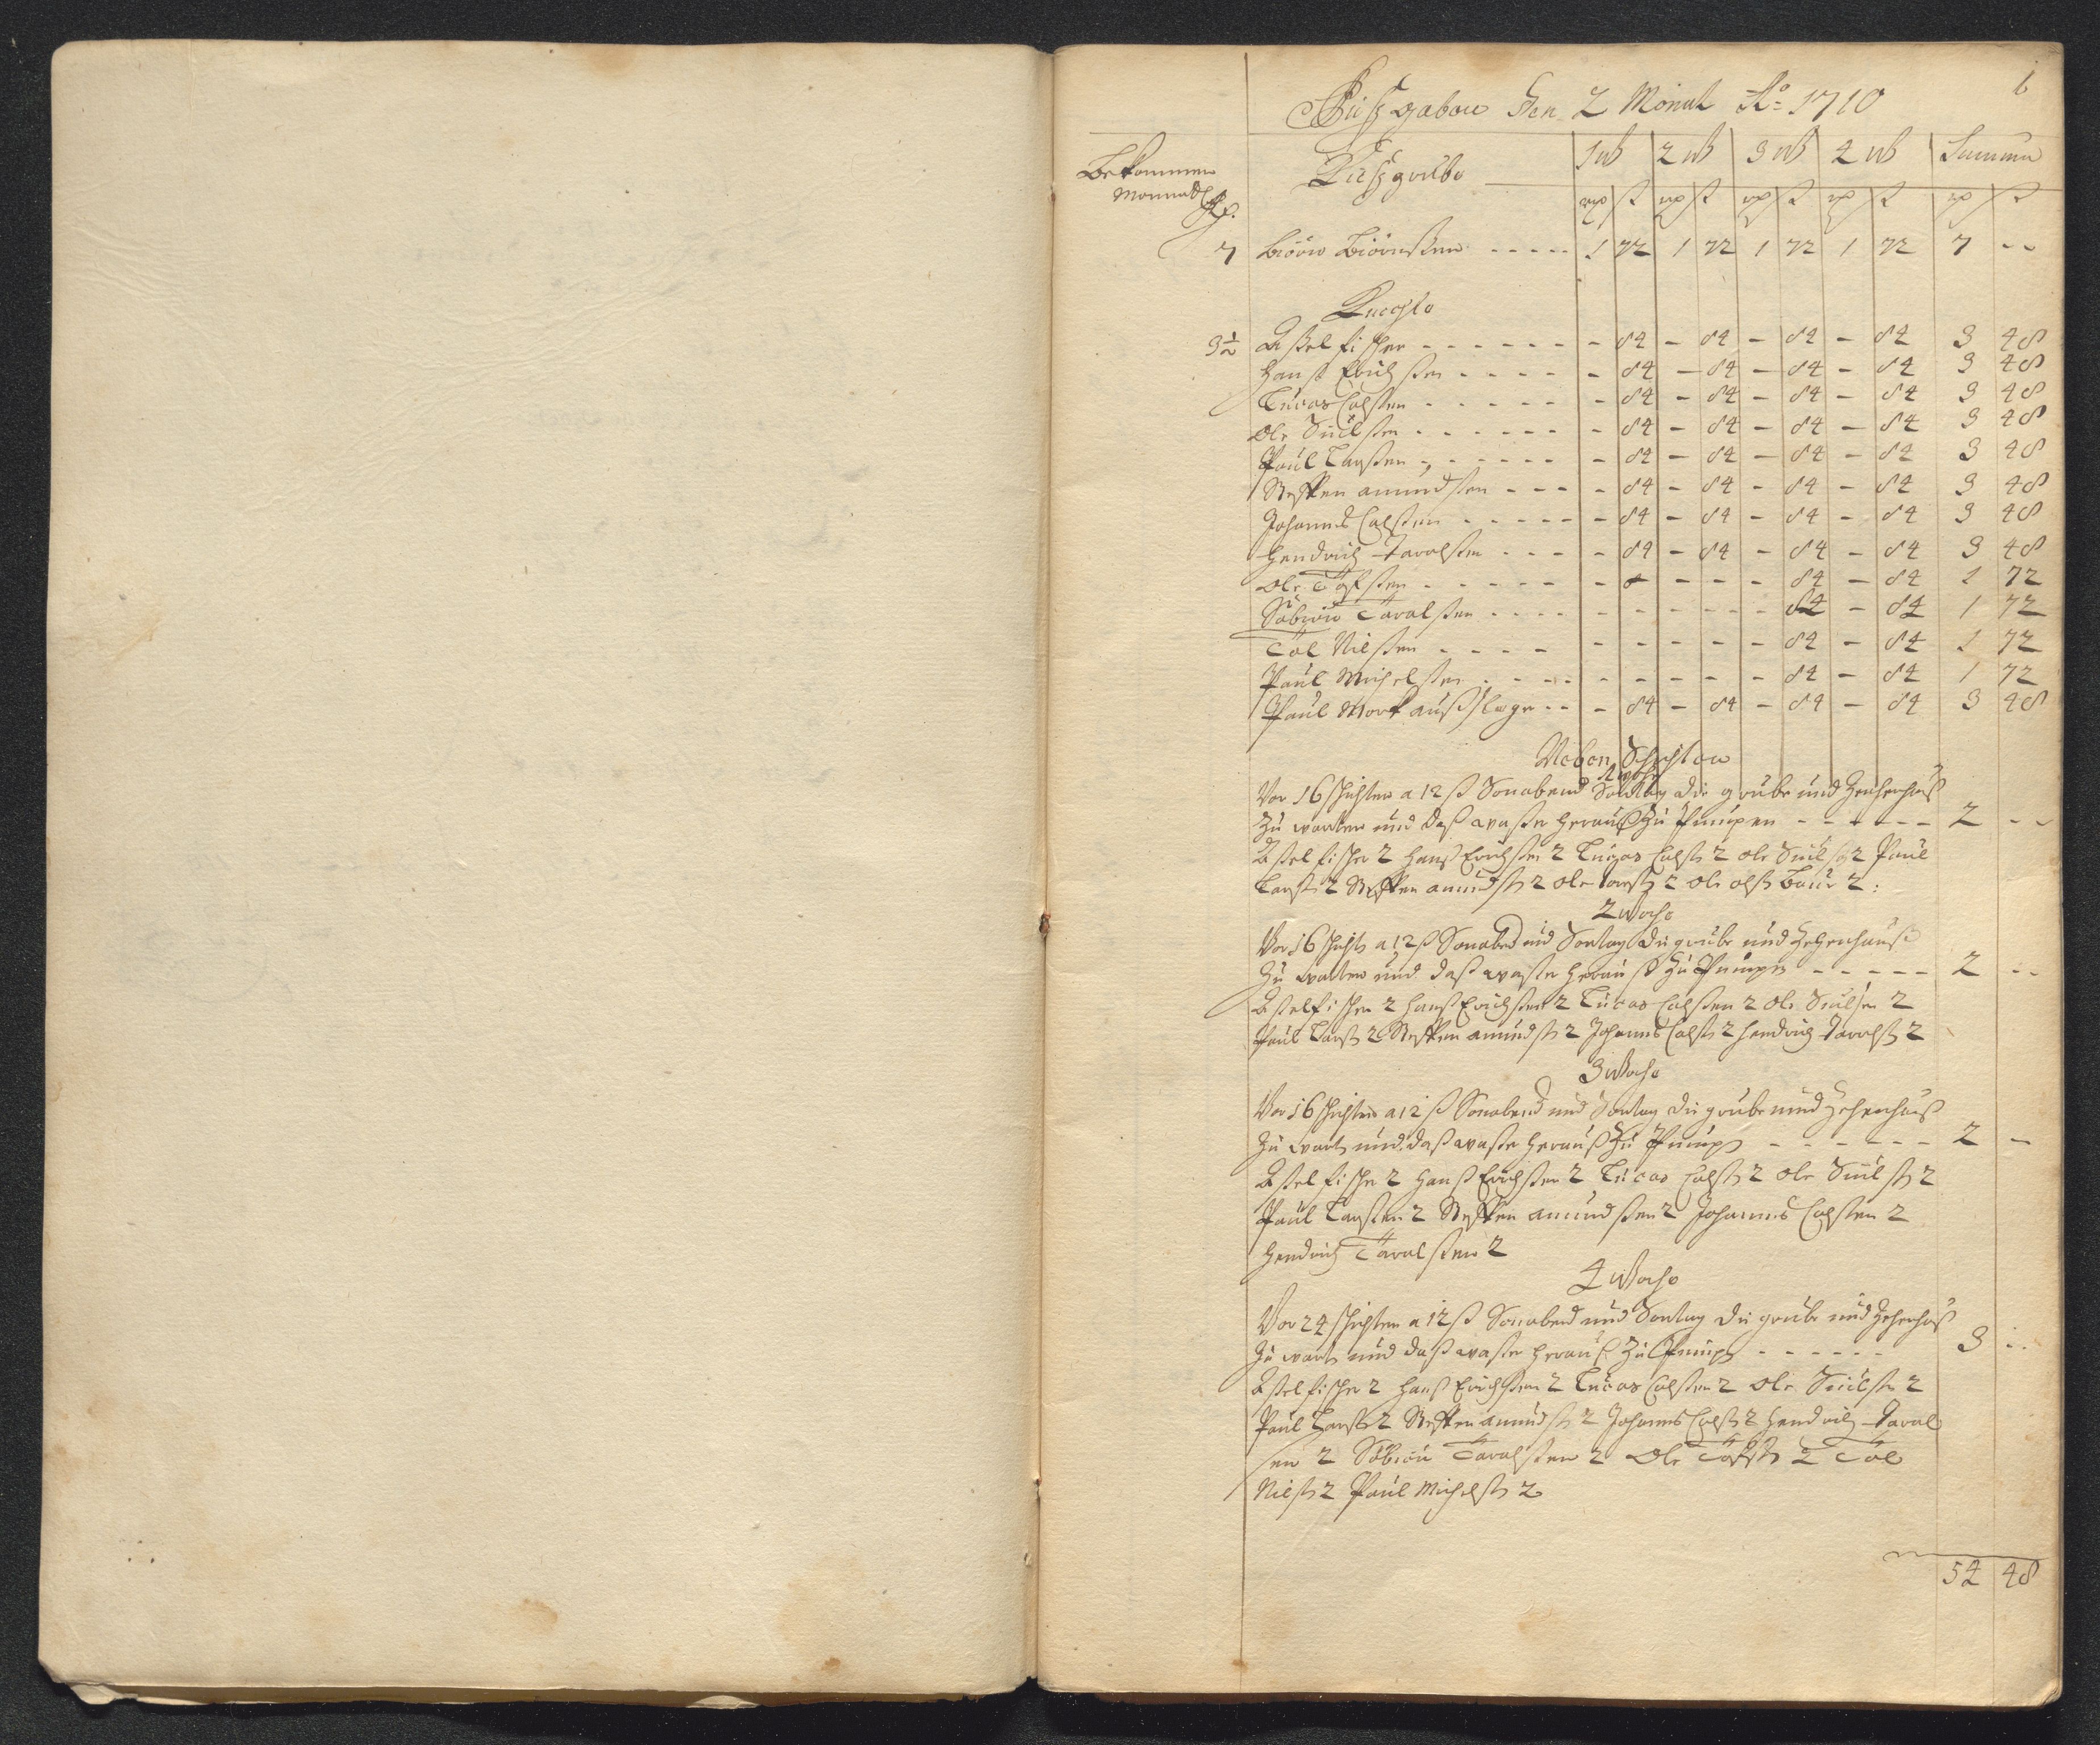 6
Außgaben Den 2 Monat Ao 1710
Bekommen
Monnatl
Rp.
Außgrube
1 W 2 W 3 W 4 W Summa
rp ß rp ß rp ß rp ß rp ß
7 biörn Biörnßen ----- 1 72 1 72 1 72 1 72 7 --
Knechte
3½ Aßel fischer ------ - 84 - 84 - 84 - 84 3 48
Hanß Erichßen ---- - 84 - 84 - 84 - 84 3 48
Lucas Calßen ----- - 84 - 84 - 84 - 84 3 48
Ole Siulßen ------ - 84 - 84 - 84 - 84 3 48
Paul Larßen ------ - 84 - 84 - 84 - 84 3 48
Steffen amundßen --- - 84 - 84 - 84 - 84 3 48
Johannes Calßen ----- - 84 - 84 - 84 - 84 3 48
Hendrich Taralßen ---- - 84 - 84 - 84 - 84 3 48
Ole ------ - - - - 84 - 84 1 72
Söbiön Taralßen ---- - - - - 84 - 84 1 72
Nilßen ---- - - - - 84 - 84 1 72
Paul Michelßen ---- - - - - 84 - 84 1 72
Paul Mork außschläger -- - 84 - 84 - 84 - 84 3 48
Neben Schichten
1 Woche
Vor 16 schichten a 12 ß Sonabend Sontag die grube und Zechenhauß
Zu warten und daß waßer herauß Zu Pumpen ------ 2 --
Aßel fischer 2 Hanß Erichßen 2 Lucas Calß 2 ole Siulß 2 Paul
Larß 2 Steffen amundß 2 ole larß 2 ole olß 2
2 Woche
Vor 16 schicht a 12 ß Sonabend und Sontag die grube und Zechenhauß
Zu warten und daß waßer herauß Zu Pumpen ----- 2 --
Aßel fischer 2 Hanß Erichßen 2 Lucas Calßen 2 ole Siulßen 2
Paul Larß 2 Steffen amundß 2 Johannes Calß 2 Hendrich Taralß 2
3 Woche
Vor 16 schichten a 12 ß Sonabend und Sontag die grube und Zechenhauß
Zu wart und daß waßer herauß Zu Pump ------ 2 -
Aßel fischer 2 Hanß Erichßen 2 Lucas Calß 2 ole Siulß 2
Paul Larßen 2 Steffen amundßen 2 Johannes Calßen 2
Hendrich Taralßen 2
4 Woche
Vor 24 schichten a 12 ß Sonabend und Sontag die grube und Zechenhauß
Zu wart und daß waßer herauß Zu Pump ------ 3 --
Aßel fischer 2 Hanß Erichßen 2 Lucas Calßen 2 Ole Siulßen 2
Paul Larß 2 Steffen amundß 2 Johannes Calß 2 Hendrich Taral
sen 2 Söbiön Taralßen 2 Ole 2
Nilß 2 Paul Michelß 2
54 48